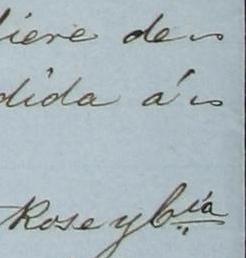 iere de
dida á
Rose y Cía